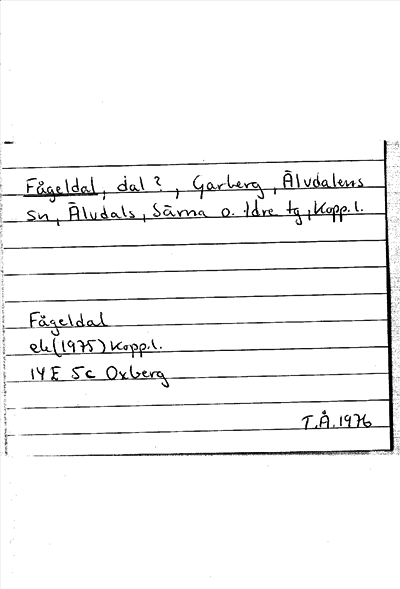 Fågeldal, dal?, Garberg, Älvdalens
sn, Älvdals, Särna o. Idre tg, Kopp.l.
Fågeldal
ek(1975) Kopp.l.
14 E 5c Oxberg
T.Å. 1976